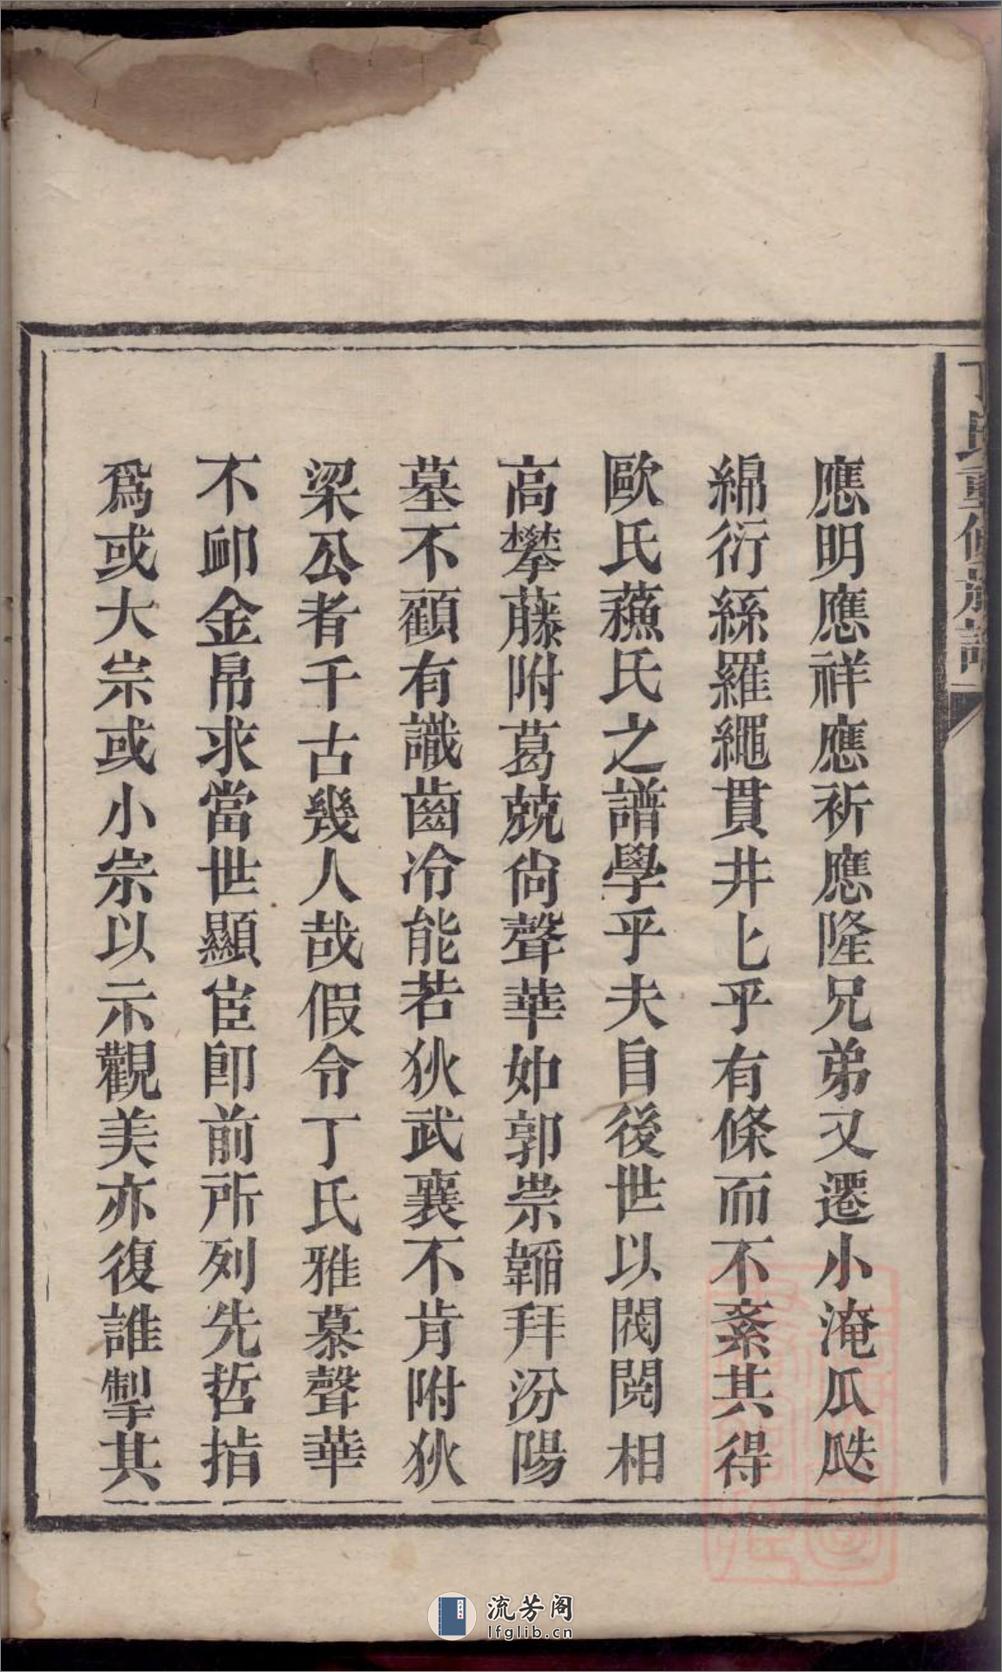 丁氏重修族譜
應明應祥應祈應隆兄弟又遷小淹瓜瓞
綿衍絲羅繩貫井匕乎有條而不紊其得
歐氏蘓氏之譜學乎夫自後世以閥閱相
高攀藤附葛兢尙聲華如郭崇韜拜汾陽
墓不顧有識齒冷能若狄武襄不肯附狄
梁公者千古幾人哉假令丁氏雅慕聲華
不卹金帛求當世顯宦卽前所列先哲指
爲或大宗或小宗以示觀美亦復誰掣其
流芳阁
lfglib.cn